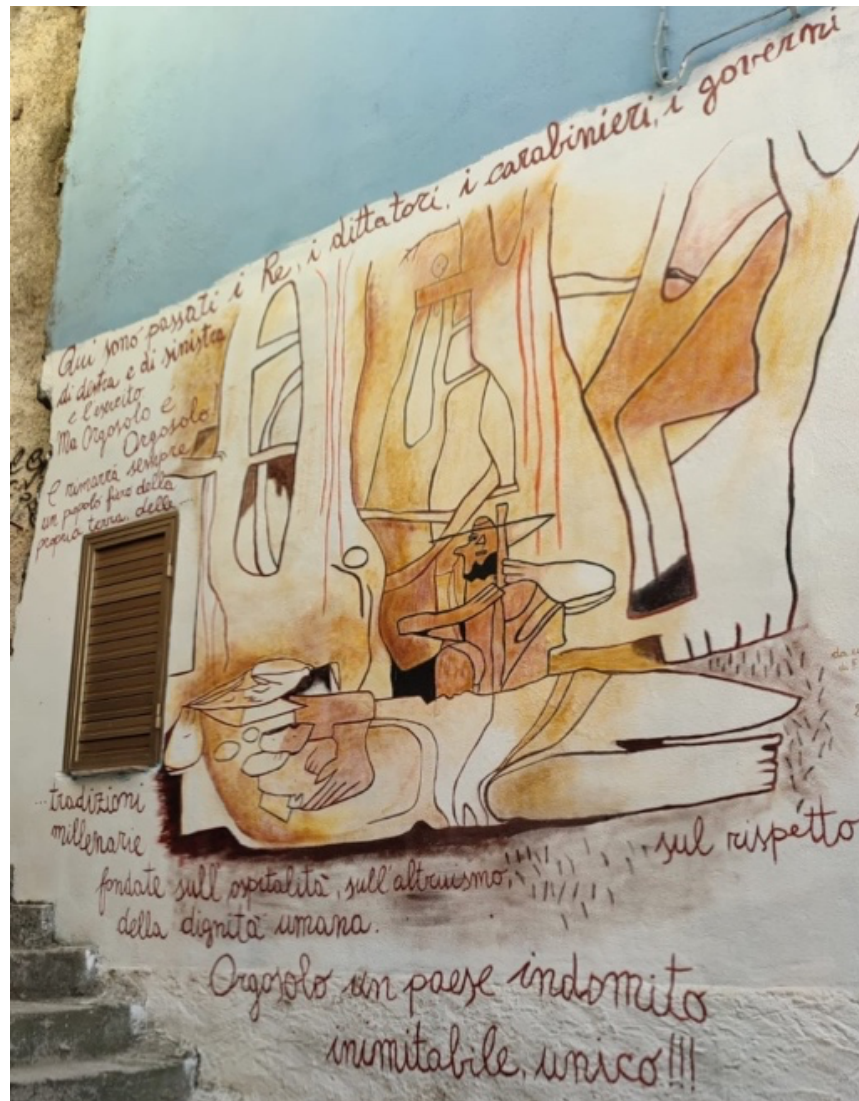 Qui sono passati i Re, i dittatori, i carabinieri, i governi
di destra e di sinistra
e l'esercito
Ma Orgosolo è
Orgosolo!
E rimarrà sempre
un popolo fiero della
propria terra, delle
...tradizioni
millenarie
fondate sull'ospitalità, sull'altruismo, sul rispetto
della dignità umana.
Orgosolo, un paese indomito
inimitabile, unico!!!